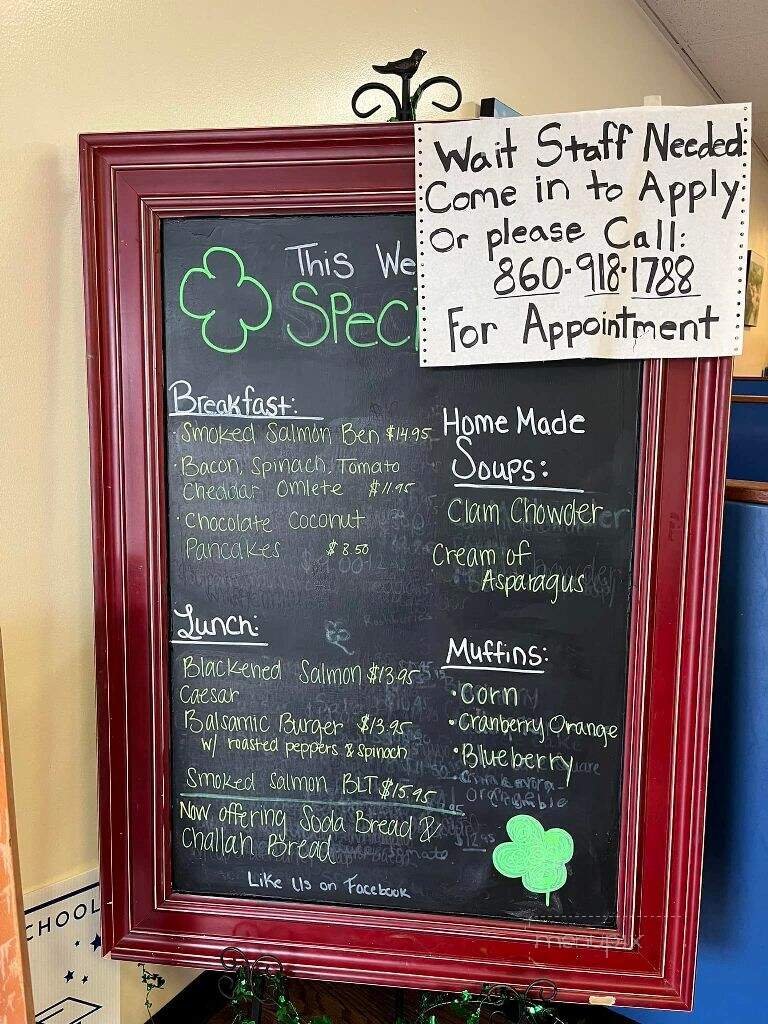 Wait Staff Needed
Come in to Apply
Or please Call:
860-918-1788
For Appointment
This We
SPeci
Breakfast:
· Smoked Salmon Ben $14.95
· Bacon, Spinach, Tomato
Cheddar Omlete $11.95
· Chocolate Coconut
Pancakes $8.50
Lunch:
Blackened Salmon $13.95
Caesar
Balsamic Burger $13.95
w/ roasted peppers & Spinach
Smoked Salmon BLT $15.95
Now offering Soda Bread &
Challah Bread
Home Made
Soups:
Clam Chowder
Cream of
Asparagus
Muffins:
· Corn
· Cranberry Orange
· Blueberry
Like Us on Facebook
CHOOL
menupix